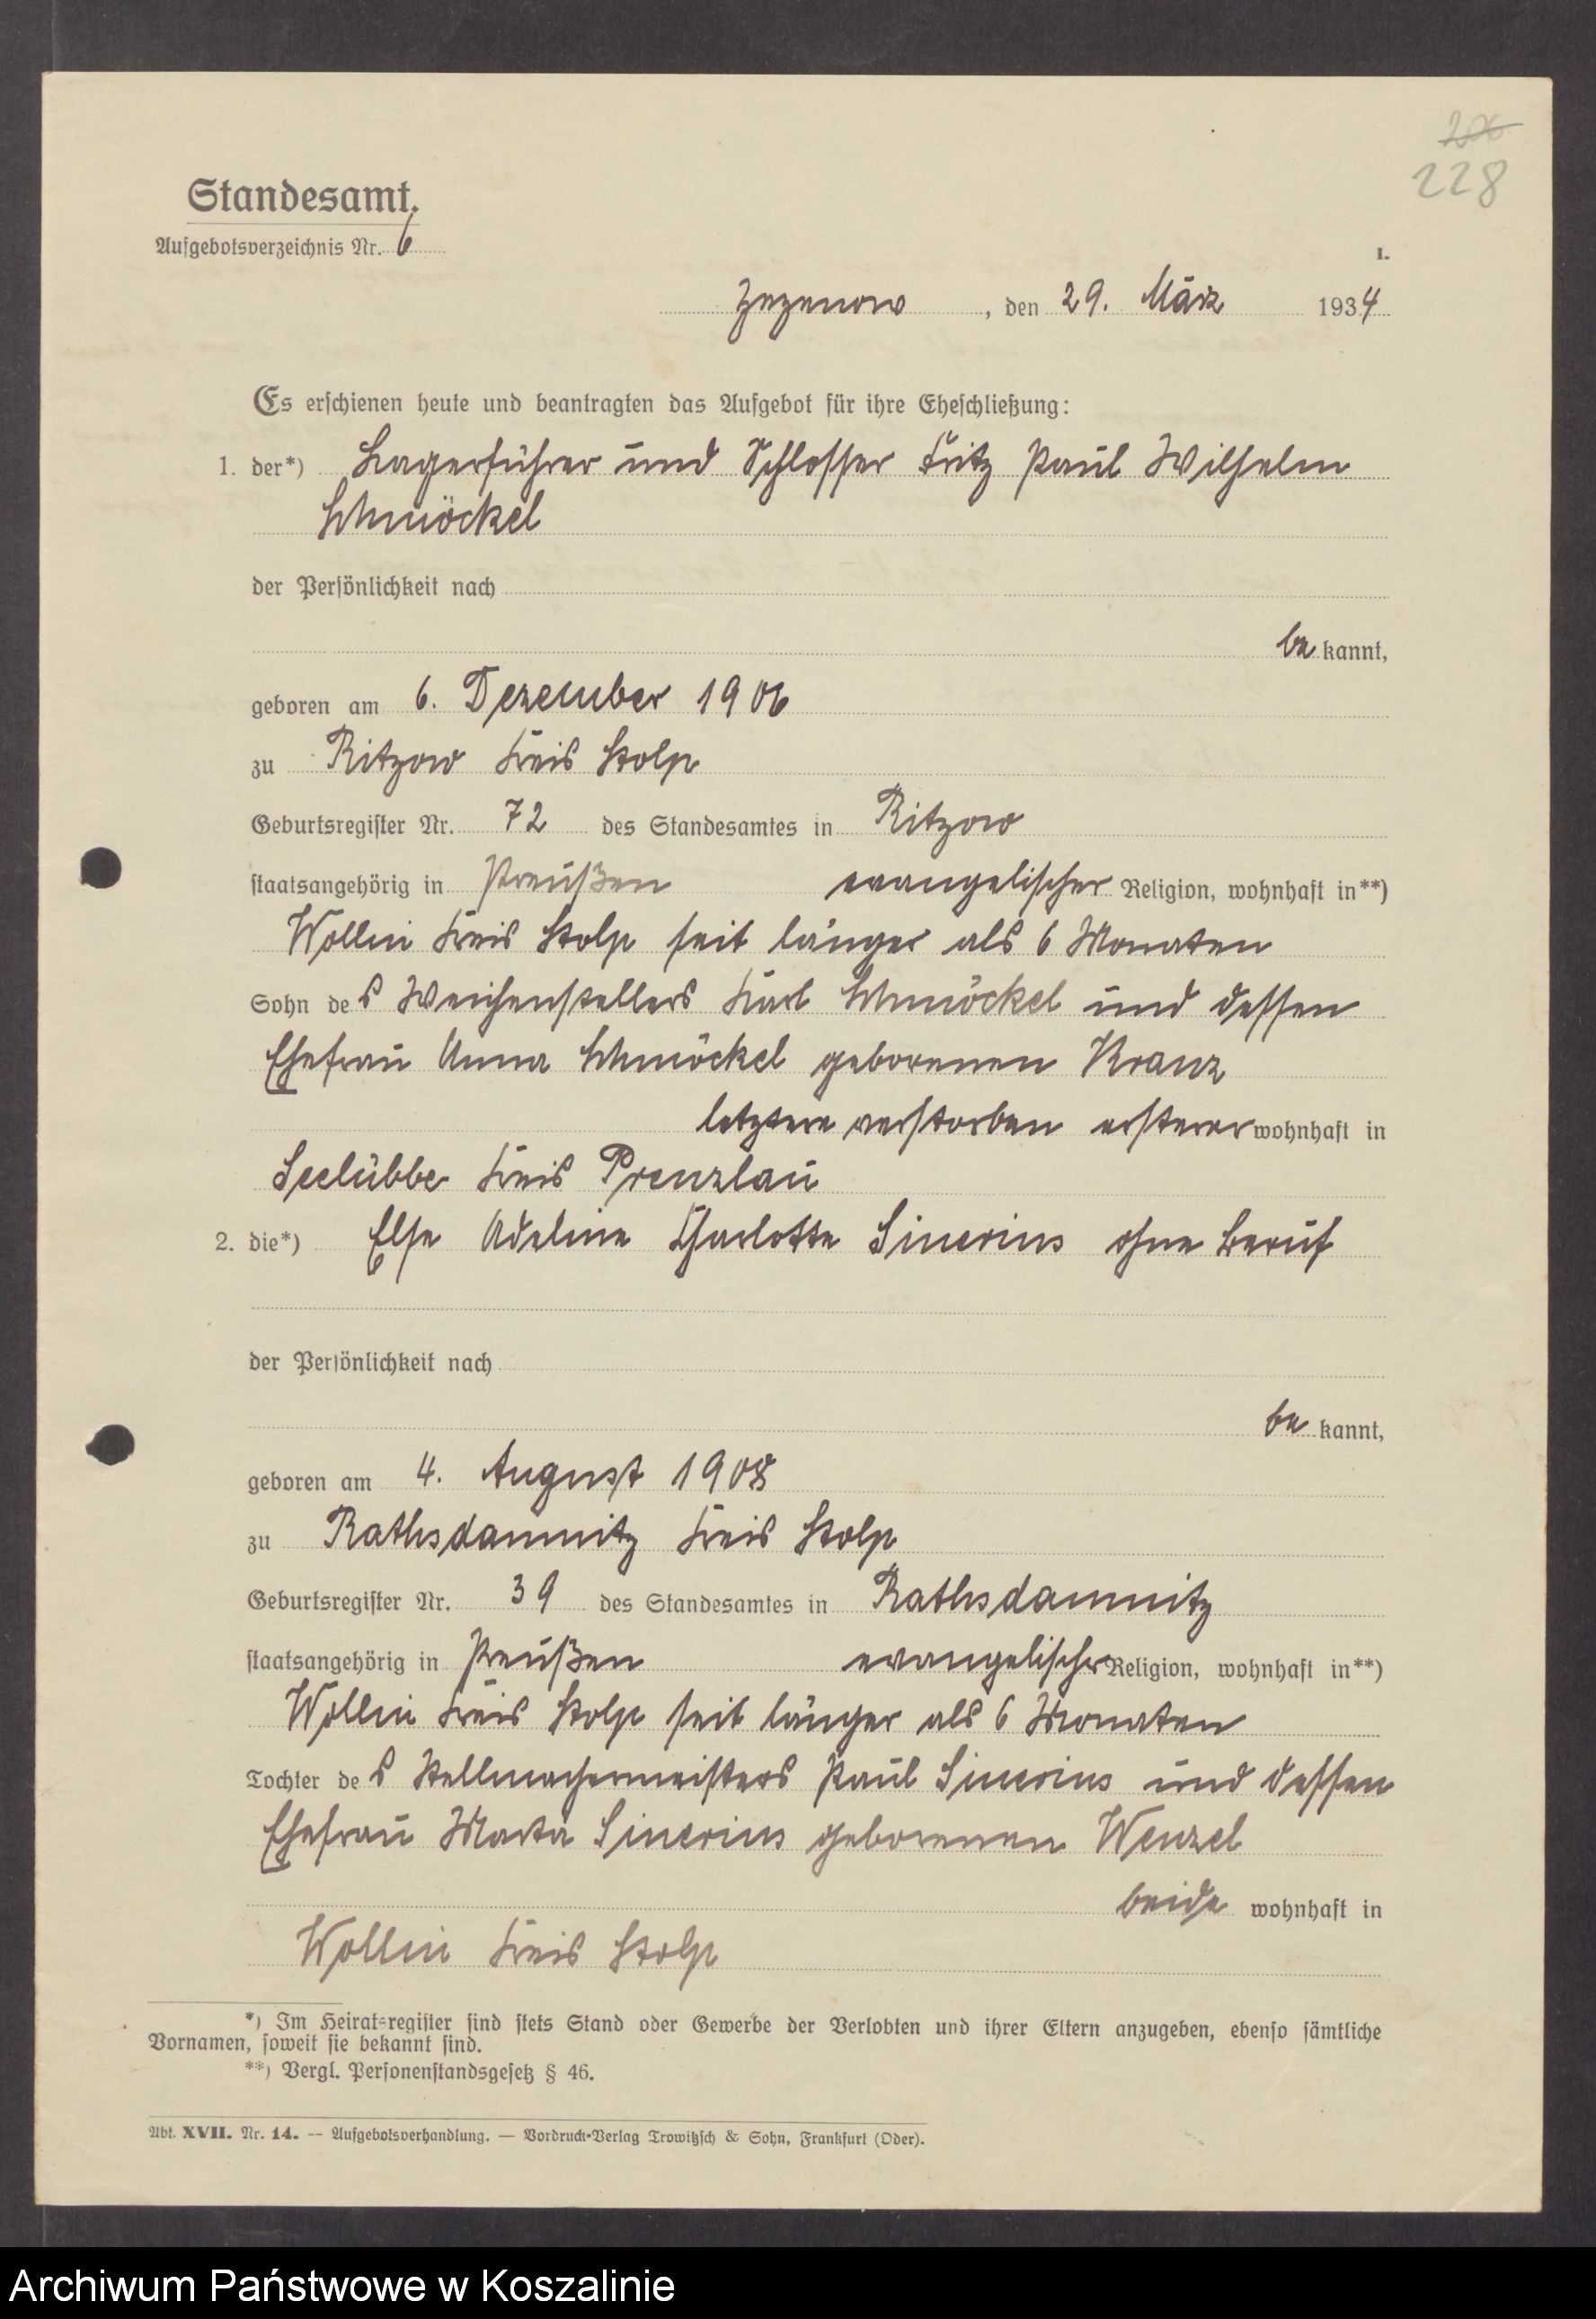 206
228
Standesamt.
Aufgebotsverzeichnis Nr. 6
I.
Zezenow, den 29. März 1934
Es erschienen heute und beantragten das Aufgebot für ihre Eheschließung:
1. der*) Lagerführer und Schlosser Fritz Paul Wilhelm
Schmöckel
der Persönlichkeit nach
be kannt,
geboren am 6. Dezember 1906
zu Ritzow Kreis Stolp
Geburtsregister Nr. 72 des Standesamtes in Ritzow
staatsangehörig in Preußen evangelischer Religion, wohnhaft in**)
Wollin Kreis Stolp seit länger als 6 Monaten
Sohn des Weichenstellers Karl Schmöckel und dessen
Ehefrau Anna Schmöckel geborenen Kranz
letztere verstorben ersterer wohnhaft in
Seelübbe Kreis Prenzlau
2. die*) Else Adeline Charlotte Sinerius ohne Beruf
der Persönlichkeit nach
be kannt,
geboren am 4. August 1908
zu Rathsdamnitz Kreis Stolp
Geburtsregister Nr. 39 des Standesamtes in Rathsdamnitz
staatsangehörig in Preußen evangelischer Religion, wohnhaft in**)
Wollin Kreis Stolp seit länger als 6 Monaten
Tochter des Stellmachermeisters Paul Sinerius und dessen
Ehefrau Marta Sinerius geborenen Wenzel
beide wohnhaft in
Wollin Kreis Stolp
*) Im Heirat=register sind stets Stand oder Gewerbe der Verlobten und ihrer Eltern anzugeben, ebenso sämtliche
Vornamen, soweit sie bekannt sind.
**) Vergl. Personenstandsgesetz § 46.
Abt. XVII. Nr. 14. -- Aufgebotsverhandlung. — Vordruck-Verlag Trowitzsch & Sohn, Frankfurt (Oder).
Archiwum Państwowe w Koszalinie